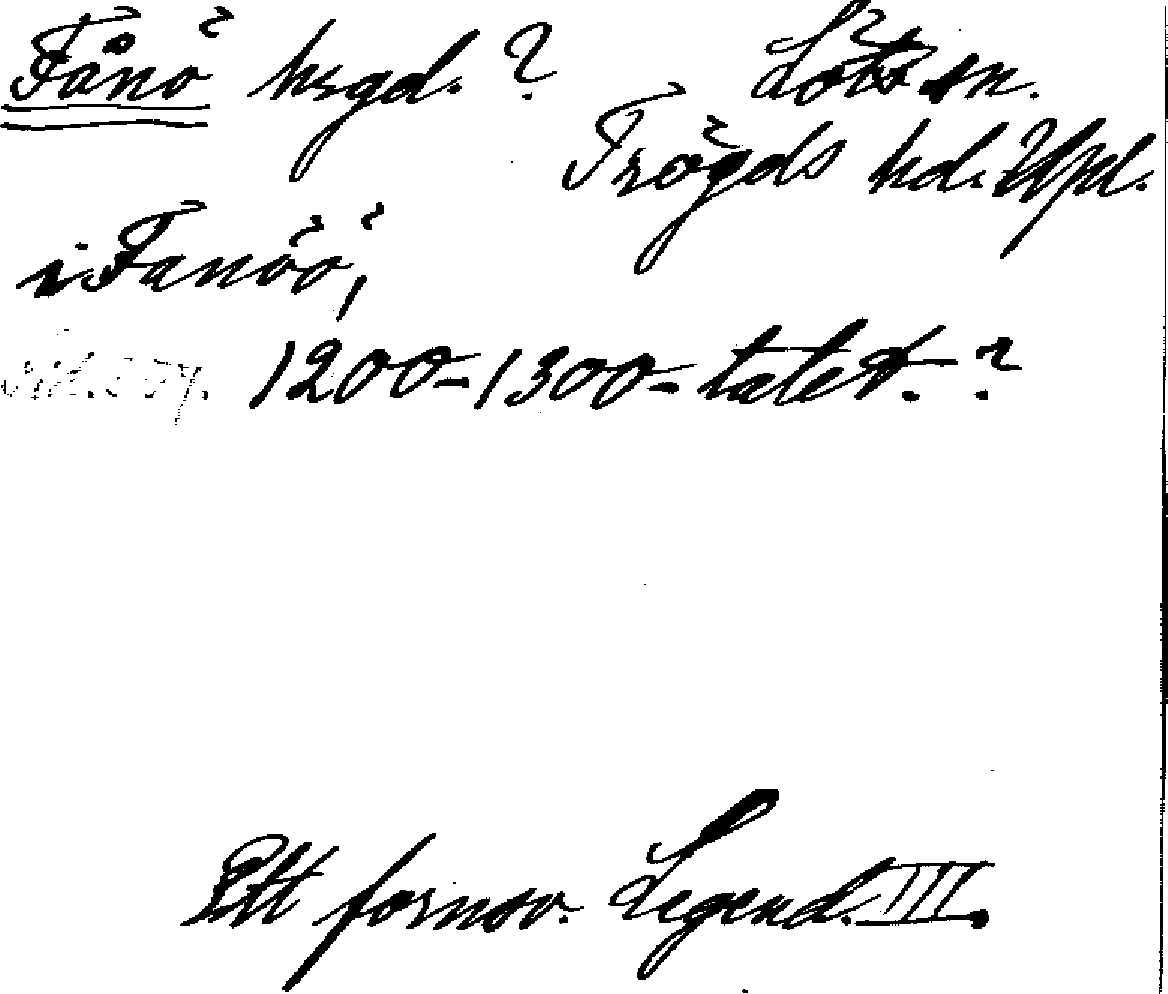 Fånö hsgd. ? Löts sn.
Trögds hd. Upl.
i Fanöö,
1200-1300-talet. ?
Ett fornsv. Legend. III.